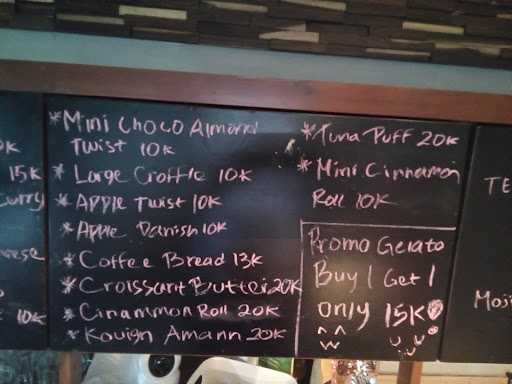 0K
15K
curry
10K
*Mini Choco Almond
Twist 10K
* Large Croffle 10K
* Apple Twist 10K
* Apple Danish 10K
* Coffee Bread 13K
* Croissant Butter 20K
* Cinammon Roll 20K
* Kouign Amann 20K
*Tuna Puff 20K
* Mini Cinnamon
Roll 10K
Promo Gelato
Buy 1 Get 1
only 15K
TE
Moji